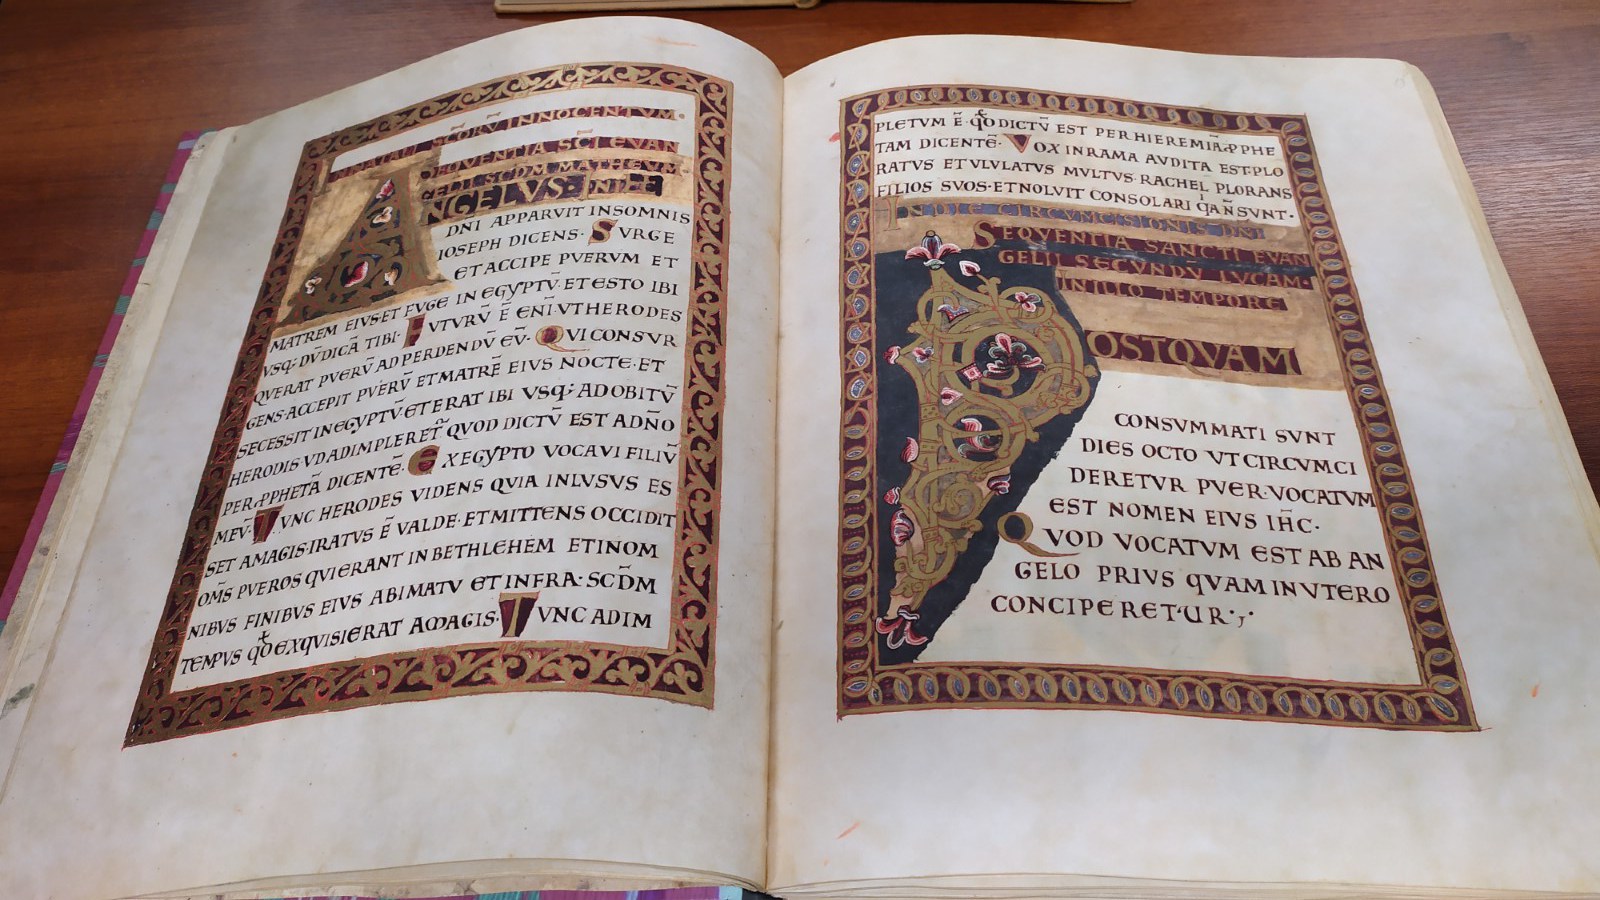 IN NATALI SCŌRV̄ INNOCENTVM·
SEQVENTIA SC̄I EVAN
GELII SCDM MATHEVM
ANGELVS·
DN̄I APPARVIT INSOMNIS
IOSEPH DICENS· SVRGE
ET ACCIPE PVERVM ET
MATREM EIVS·ET FVGE IN EGYPTV̄·ET ESTO IBI
VSQ; DV̄ DICĀ TIBI· FVTVRV̄ Ē ENĪ·VT HERODES
QVERAT PVERV̄ AD PERDENDV̄ EV̄· QVI CONSVR
GENS·ACCEPIT PVERV̄ ET MATRĒ EIVS NOCTE·ET
SECESSIT IN EGYPTV̄·ET ERAT IBI VSQ; AD OBITV̄
HERODIS·VD ADIMPLERET᷑ QVOD DICTV̄ EST ADN̄O
PER PPHETĀ DICENTĒ· EX EGYPTO VOCAVI FILIV̄
MEV̄· TVNC HERODES VIDENS QVIA INLVSVS ES
SET AMAGIS·IRATVS Ē VALDE·ET MITTENS OCCIDIT
OM̄S PVEROS QVI ERANT IN BETHLEHEM ET IN OM
NIBVS FINIBVS EIVS ABIMATV ET INFRA·SCD̄M
TEMPVS qđ EXQVISIERAT AMAGIS· TVNC ADIM
PLETVM Ē· qđ DICTV̄ EST PER HIEREMIĀ PPHE
TAM DICENTĒ· VOX IN RAMA AVDITA EST·PLO
RATVS ET VLVLATVS MVLTVS·RACHEL PLORANS
FILIOS SVOS·ET NOLVIT CONSOLARI QIA N̄ SVNT·
IN DIE CIRCVMCISIONIS DN̄I
SEQVENTIA SANCTI EVAN
GELII SECVNDV̄ LVCAM·
IN ILLO TEMPORE
POSTQVAM
CONSVMMATI SVNT
DIES OCTO VT CIRCVMCI
DERETVR PVER·VOCATVM
EST NOMEN EIVS IH̄C·
QVOD VOCATVM EST AB AN
GELO PRIVS QVAM IN VTERO
CONCIPERETUR·,·